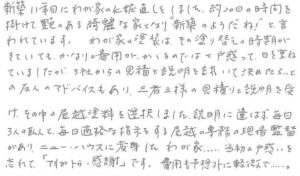 新築11年目にわが家の化粧直しをしました。約20日の時間を
掛けて艶のある綺麗な家となり"新築のようだね"と言
われています。 わが家の塗装は、その塗り替えの時期が
きていても、かなりの費用がかかるのではと戸惑って、日を重ね
ていましたが 3社からの見積と説明を聞いて決めたらとの
友人のアドバイスもあり、三者三様の見積りと説明を受
け、その中の屋越塗料を選択しました。説明に違はず毎日
3人の職人と、毎日適格な指示をする屋越の専務の現場監督
があり、ニュー・ハウスに変身したわが家……当初の戸惑いを
忘れて「ありがとう・感謝」です。費用も予想外に軽微で……。